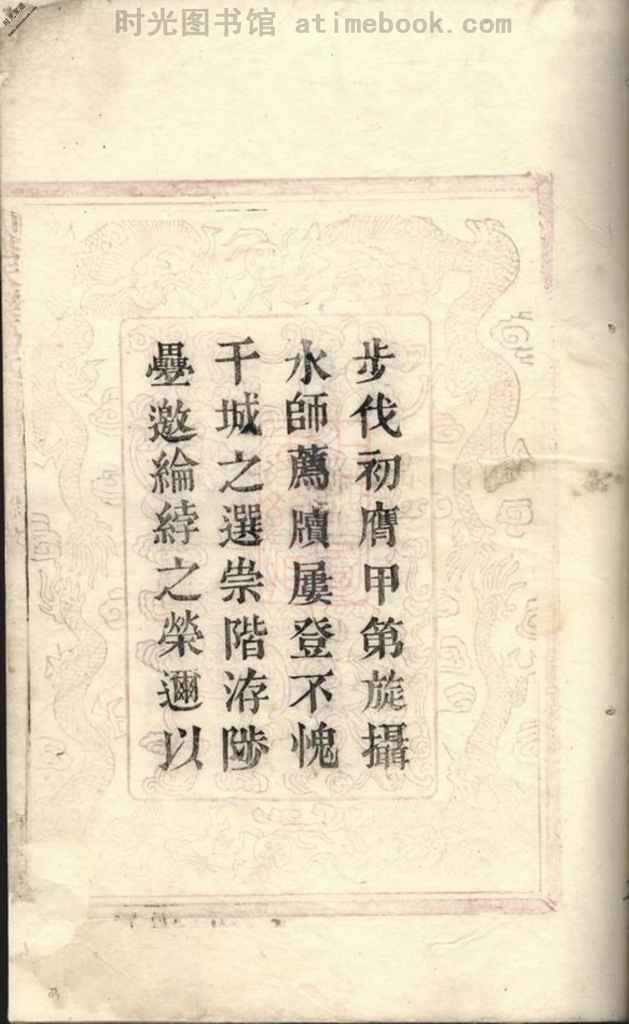 时光图书馆 atimebook.com
步伐初膺甲第旋攝
水師薦牘屢登不愧
干城之選崇階洊陟
疊邀綸綍之榮邇以